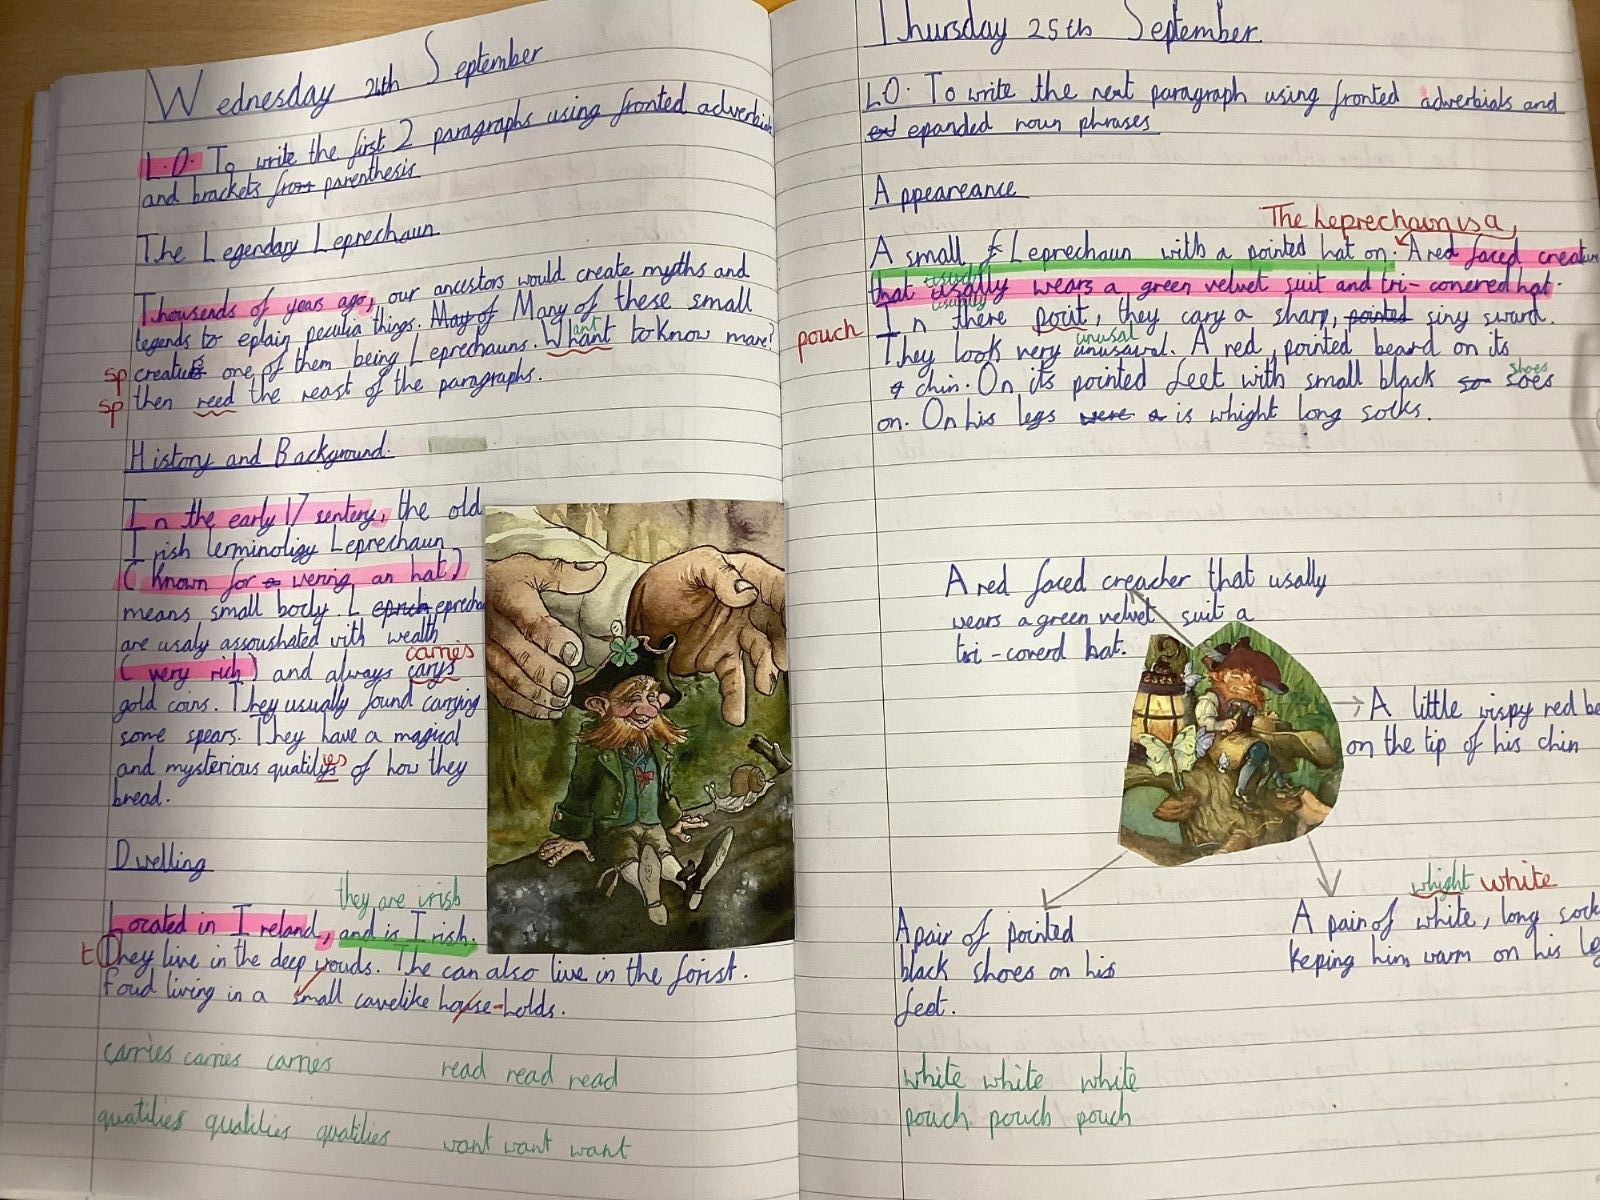 Wednesday 24th September
L.O. To write the first 2 paragraphs using fronted adverbials
and brackets from parenthesis
The Legendary Leprechaun
Thousends of years ago, our ancestors would create myths and
legends to eplain peculia things. May of Many of these small
ant
sp creatures one of them being Leprechauns. Whant to know more?
sp then reed the reast of the paragraphs.
History and Background.
In the early 17 sentery, the old
Irish terminoligy Leprechaun
(known for a wering an hat)
means small body. L eprech
are usaly assoushated with wealth
carries
(very rich) and always carys
gold coins. They usually found carrying
some spears. They have a magical
and mysterious quatilies of how they
bread.
Dwelling
they are irish
Located in Ireland, and is Irish.
t They live in the deep wouds. The can also live in the forist.
Foud living in a small cavelike house-holds.
carries carries carries read read read
quatilies qualities quatilies want want want
Thursday 25th September
L.O. To write the next paragraph using fronted adverbials and
ex epanded noun phrases
Appeareance
The leprechaun is a,
A small, Leprechaun with a pointed hat on. A red faced
usually
that usally wears a green velvet suit and tri-conered hat.
usually
pouch In there pout, they cary a sharp, pointed siny sward.
unusal
They look very unusaval. A red, pointed beard on its
chin. On its pointed feet with small black so soes
shoes
on. On his legs were a is whight long socks.
A red faced creacher that usally
wears a green velvet suit a
tri-coverd hat.
A little wispy red
on the tip of his chin
A pair of pointed
black shoes on his
feet.
whight white
A pair of white, long
keping him warm on his
white white white
pouch pouch pouch